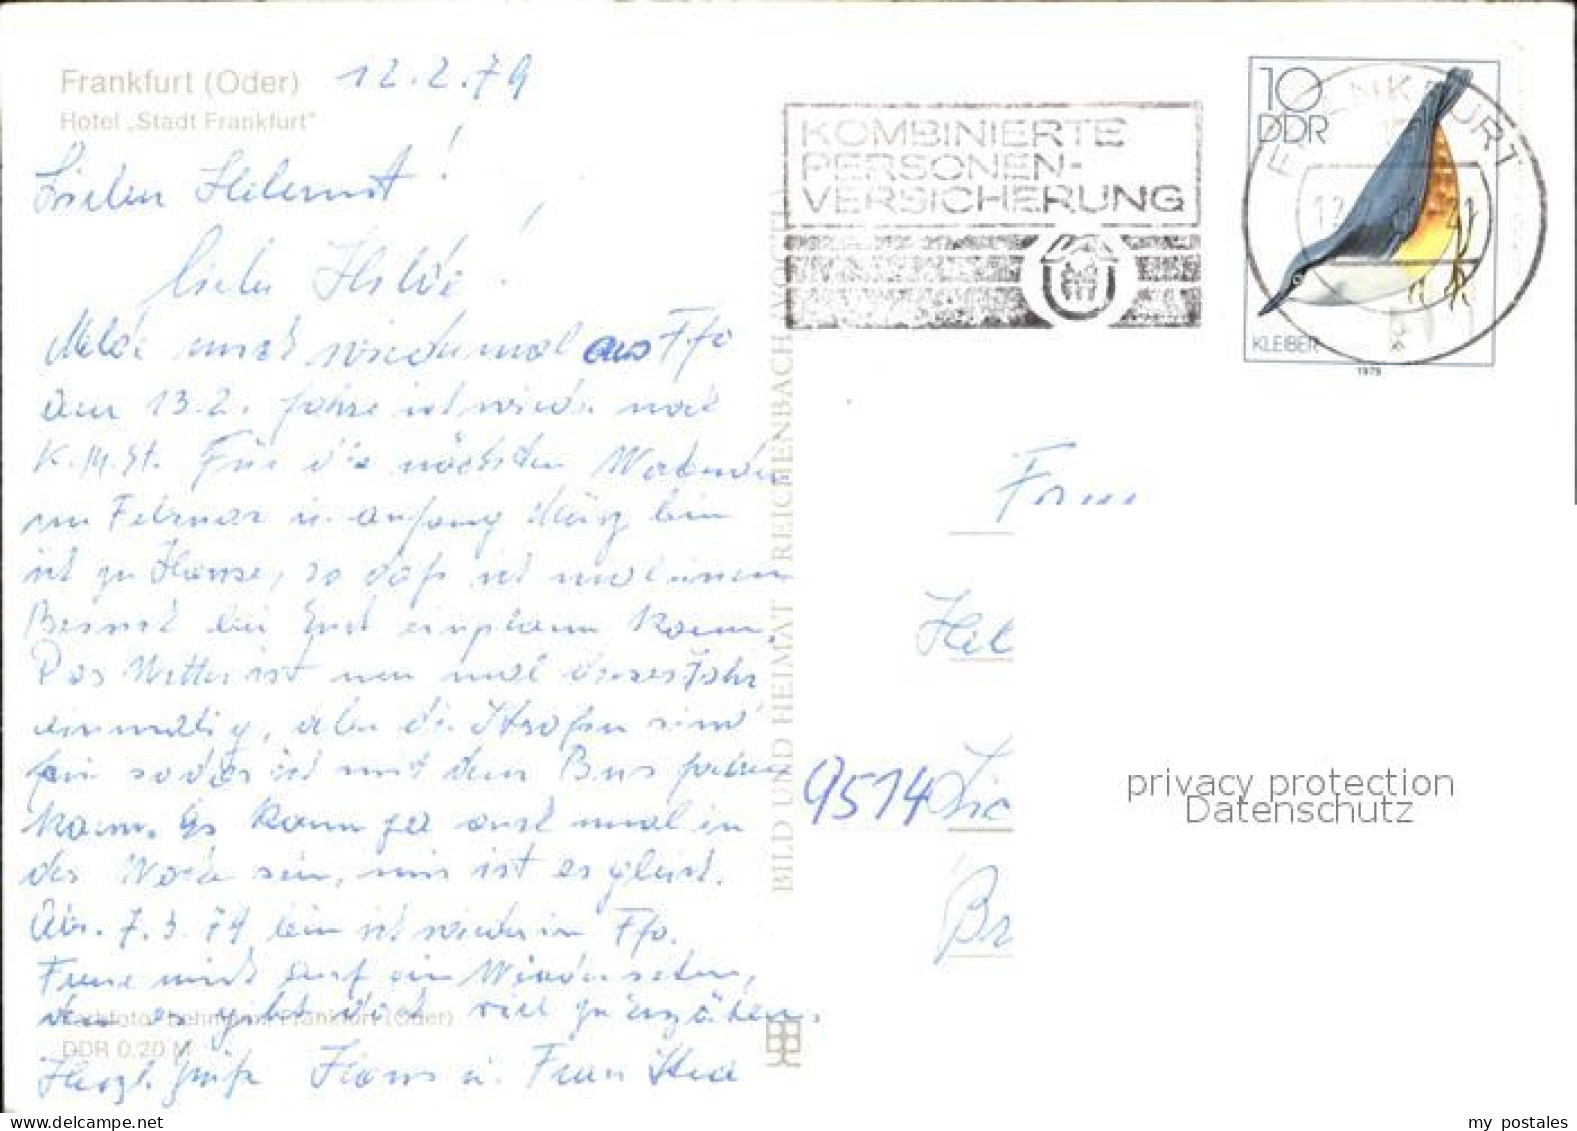 Frankfurt (Oder) 12.2.79
Hotel „Stadt Frankfurt"
Lieber Helmut!
Liebe Hilde!
Melde mich wiedermal aus Ffo
den 13.2. fahre ich wieder nach
K.M.St. Für die nächsten Wochenden
im Februar u. anfang März bin
ich zu Hause, so daß ich mal einen
Besuch bei Euch einplanen kann.
Das Wetter ist nun mal dieses Jahr
einmalig, aber die Straßen sind
frei sodas ich mit dem Bus fahren
kann. Es kann ja auch mal in
der Woche sein, mir ist es gleich.
Ab. 7.3.79 bin ich wieder in Ffo.
Freue mich auf ein Wiedersehen,
den es gibt doch viel zu erzählen.
Farbfoto: Lehmann, Frankfurt (Oder)
DDR 0,20 M
Herzl. Grüße Hans u. Frau
BILD UND HEIMAT REICHENBACH (VOGTL)
KOMBINIERTE
PERSONEN-
VERSICHERUNG
10
DDR
KLEIBER
1979
FRANKFURT
Fam
Hel
9514 Lic
Br
privacy protection
Datenschutz
my postales